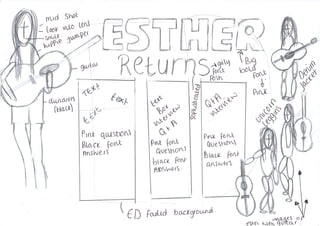 mid shot
look into lens
smile
hippie jumper
ESTHER
Returns
guitar
girly
font
Big
bold
Font
Pink
Denim
Jacket
dungarees
(black)
TEXT
text
text.
Pink questions
Black font
Answers
text
Box
interview
Q+A
Pink font
Questions
black font
Answers.
Q+A
interview
Pink font
Questions
Black font
answers
ED Faded background
images of
with guitar